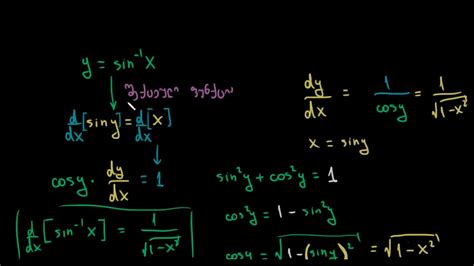 y = sin⁻¹x
d/dx [siny] = d/dx [x]
cosy · dy/dx = 1
d/dx [sin⁻¹x] = 1/√(1-x²)
dy/dx = 1/cosy = 1/√(1-x²)
x = siny
sin²y + cos²y = 1
cos²y = 1 - sin²y
cosy = √(1-(siny)²) = √(1-x²)